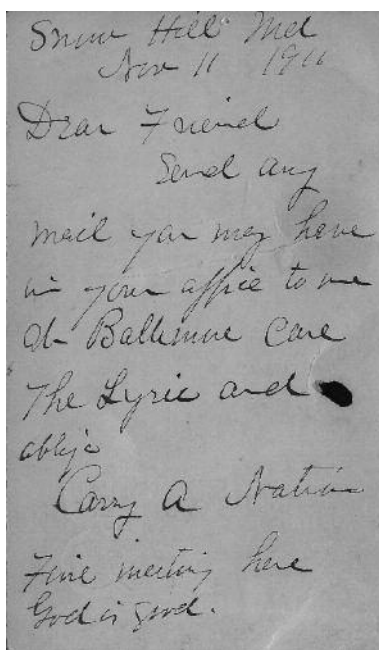 Snow Hill Md
Nov 11 1910
Dear Friend
Send any
mail you may have
in your office to me
at Baltimore Care
The Lyric and
oblige
Carry A Nation
Fine meeting here
God is good.